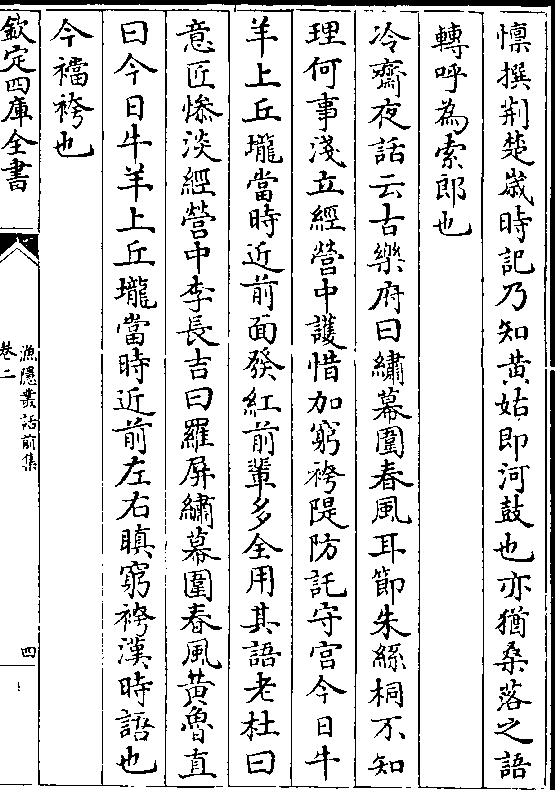 懔撰荆楚嵗時記乃知黄姑即河鼓也亦猶桑落之語
轉呼為索郎也
冷齋夜話云古樂府曰繡幕圍春風耳節朱絲桐不知
理何事淺立經營中護惜加窮袴隄防託守宫今日牛
羊上丘壠當時近前面發紅前輩多全用其語老杜曰
意匠惨淡經營中李長吉曰羅屏繡幕圍春風黄魯直
曰今日牛羊上丘壠當時近前左右瞋窮袴漢時語也
今襠袴也
欽定四庫全書
漁隱叢話前集
卷二
四